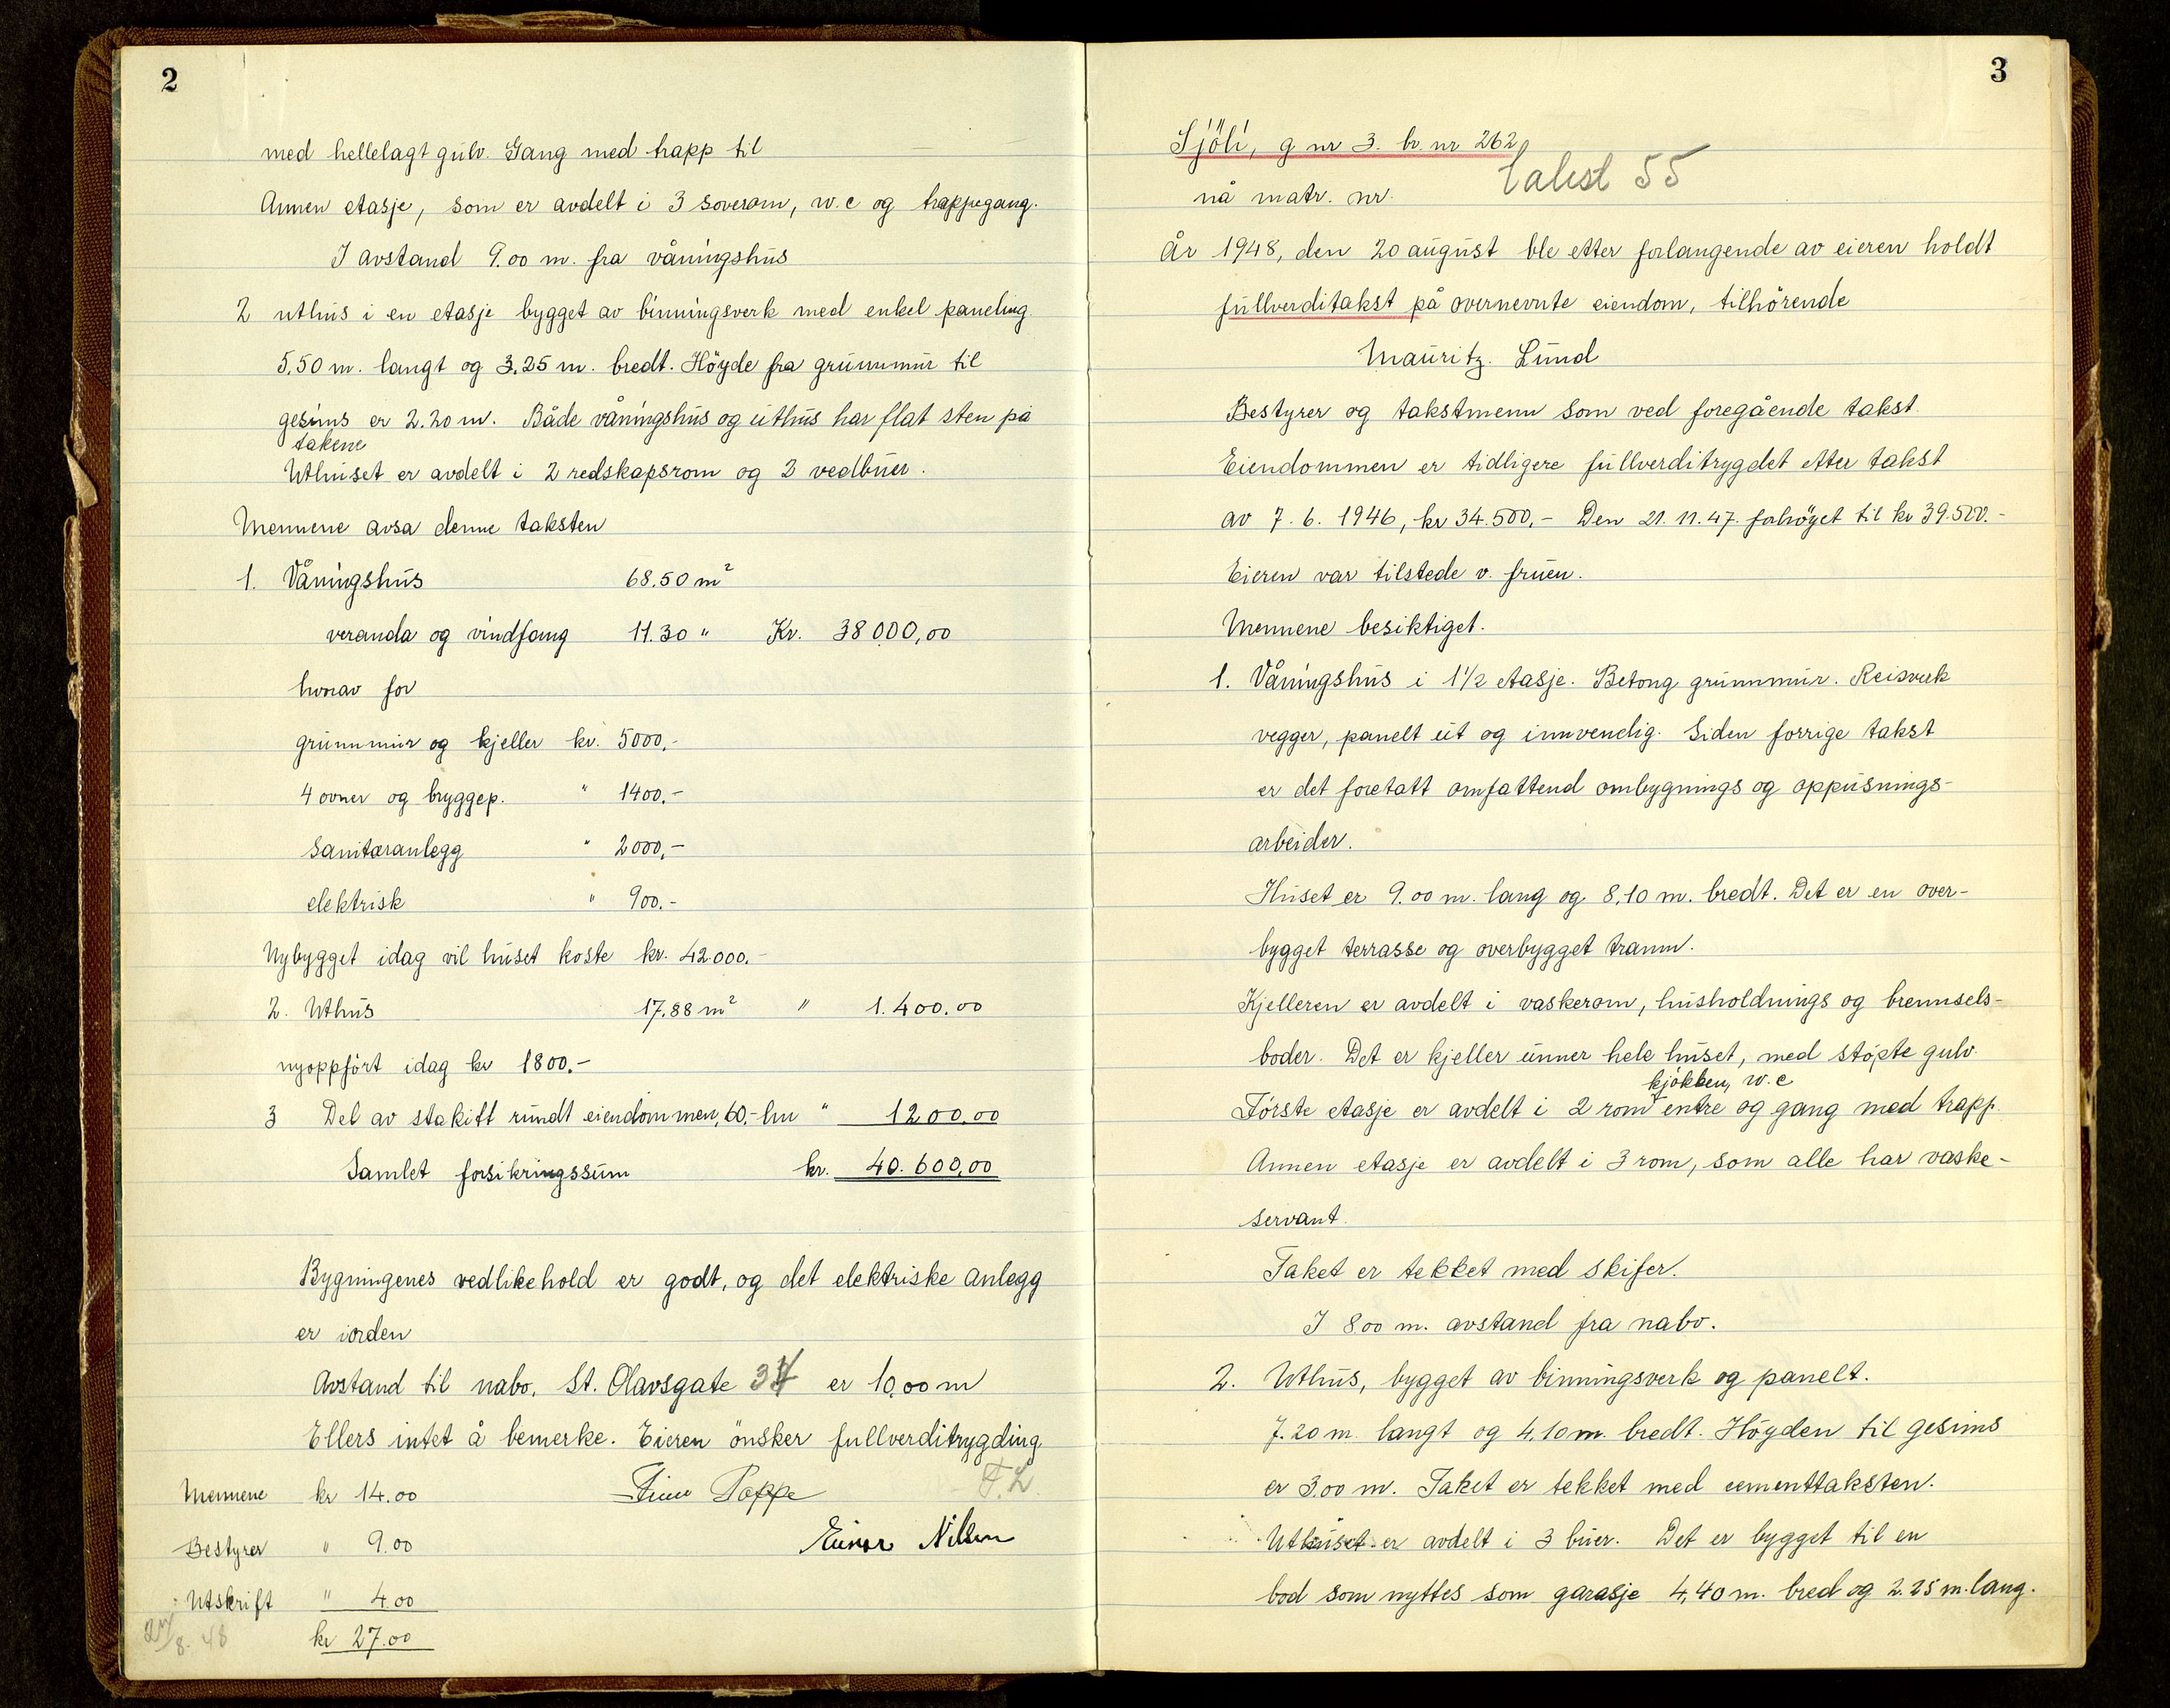 2
med hellelagt gulv. Gang med trapp til
Annen etasje, som er avdelt i 3 soverom, w.c og trappegang.
I avstand 9.00 m. fra våningshus
2 uthus i en etasje bygget av binningsverk med enkel paneling
5,50 m. langt og 3.25 m. bredt. Höyde fra grunnmur til
gesims er 2.20 m. Både våningshus og uthus har flat sten på
takene
Uthuset er avdelt i 2 redskapsrom og 2 vedbuer.
Mennene avsa denne taksten
1. Våningshus 68.50 m²
veranda og vindfang 11.30 " Kr. 38000,00
hvorav for
grunnmur og kjeller kr. 5000.-
4 ovner og bryggep. " 1400.-
Sanitæranlegg " 2000,-
elektrisk " 900.-
Nybygget idag vil huset koste kr. 42.000.-
2. Uthus 17.88 m² " 1.400.00
nyoppfört idag kr 1800.-
3 Del av stakitt rundt eiendommen, 60,- lm " 1200,00
Samlet forsikringssum kr. 40.600,00
Bygningenes vedlikehold er godt, og det elektriske anlegg
er iorden
Avstand til nabo, St. Olavsgate er 10,00 m
Ellers intet å bemerke. Eieren önsker fullverditrygding
Mennene kr 14.00 Poppe F.L.
Bestyrer " 9.00 Einar Nilsen
Utskrift " 4.00
27/8. 48 kr 27.00
3
Sjöli, g nr 3. br. nr 262
takst 55
nå matr. nr.
År 1948, den 20 august ble etter forlangende av eieren holdt
fullverditakst på overnevnte eiendom, tilhörende
Mauritz. Lund
Bestyrer og takstmenn som ved foregående takst.
Eiendommen er tidligere fullverditrygdet etter takst
av 7. 6. 1946, kr 34.500,- Den 21. 11. 47. forhöyet til kr 39.500.-
Eieren var tilstede v. fruen.
Mennene besiktiget.
1. Våningshus i 1 1/2 etasje. Betong grunnmur. Reisverk
vegger, panelt ut og innvendig. Siden forrige takst
er det foretatt omfattend ombygnings og oppusnings-
arbeider.
Huset er 9.00 m. lang og 8.10 m. bredt. Det er en over-
bygget terrasse og overbygget tramm.
Kjelleren er avdelt i vaskerom, husholdnings og brennsels-
boder. Det er kjeller unner hele huset, med stöpte gulv.
kjökken, w.c
Förste etasje er avdelt i 2 rom entre og gang med trapp.
Annen etasje er avdelt i 3 rom, som alle har vaske-
servant.
Taket er tekket med skifer.
I 8.00 m. avstand fra nabo.
2. Uthus, bygget av binningsverk og panelt.
7.20 m. langt og 4.10 m. bredt. Höyden til gesims
er 3.00 m. Taket er tekket med cementtaksten.
Uthuset er avdelt i 3 buer. Det er bygget til en
bod som nyttes som garasje 4,40 m. bred og 2.25 m. lang.